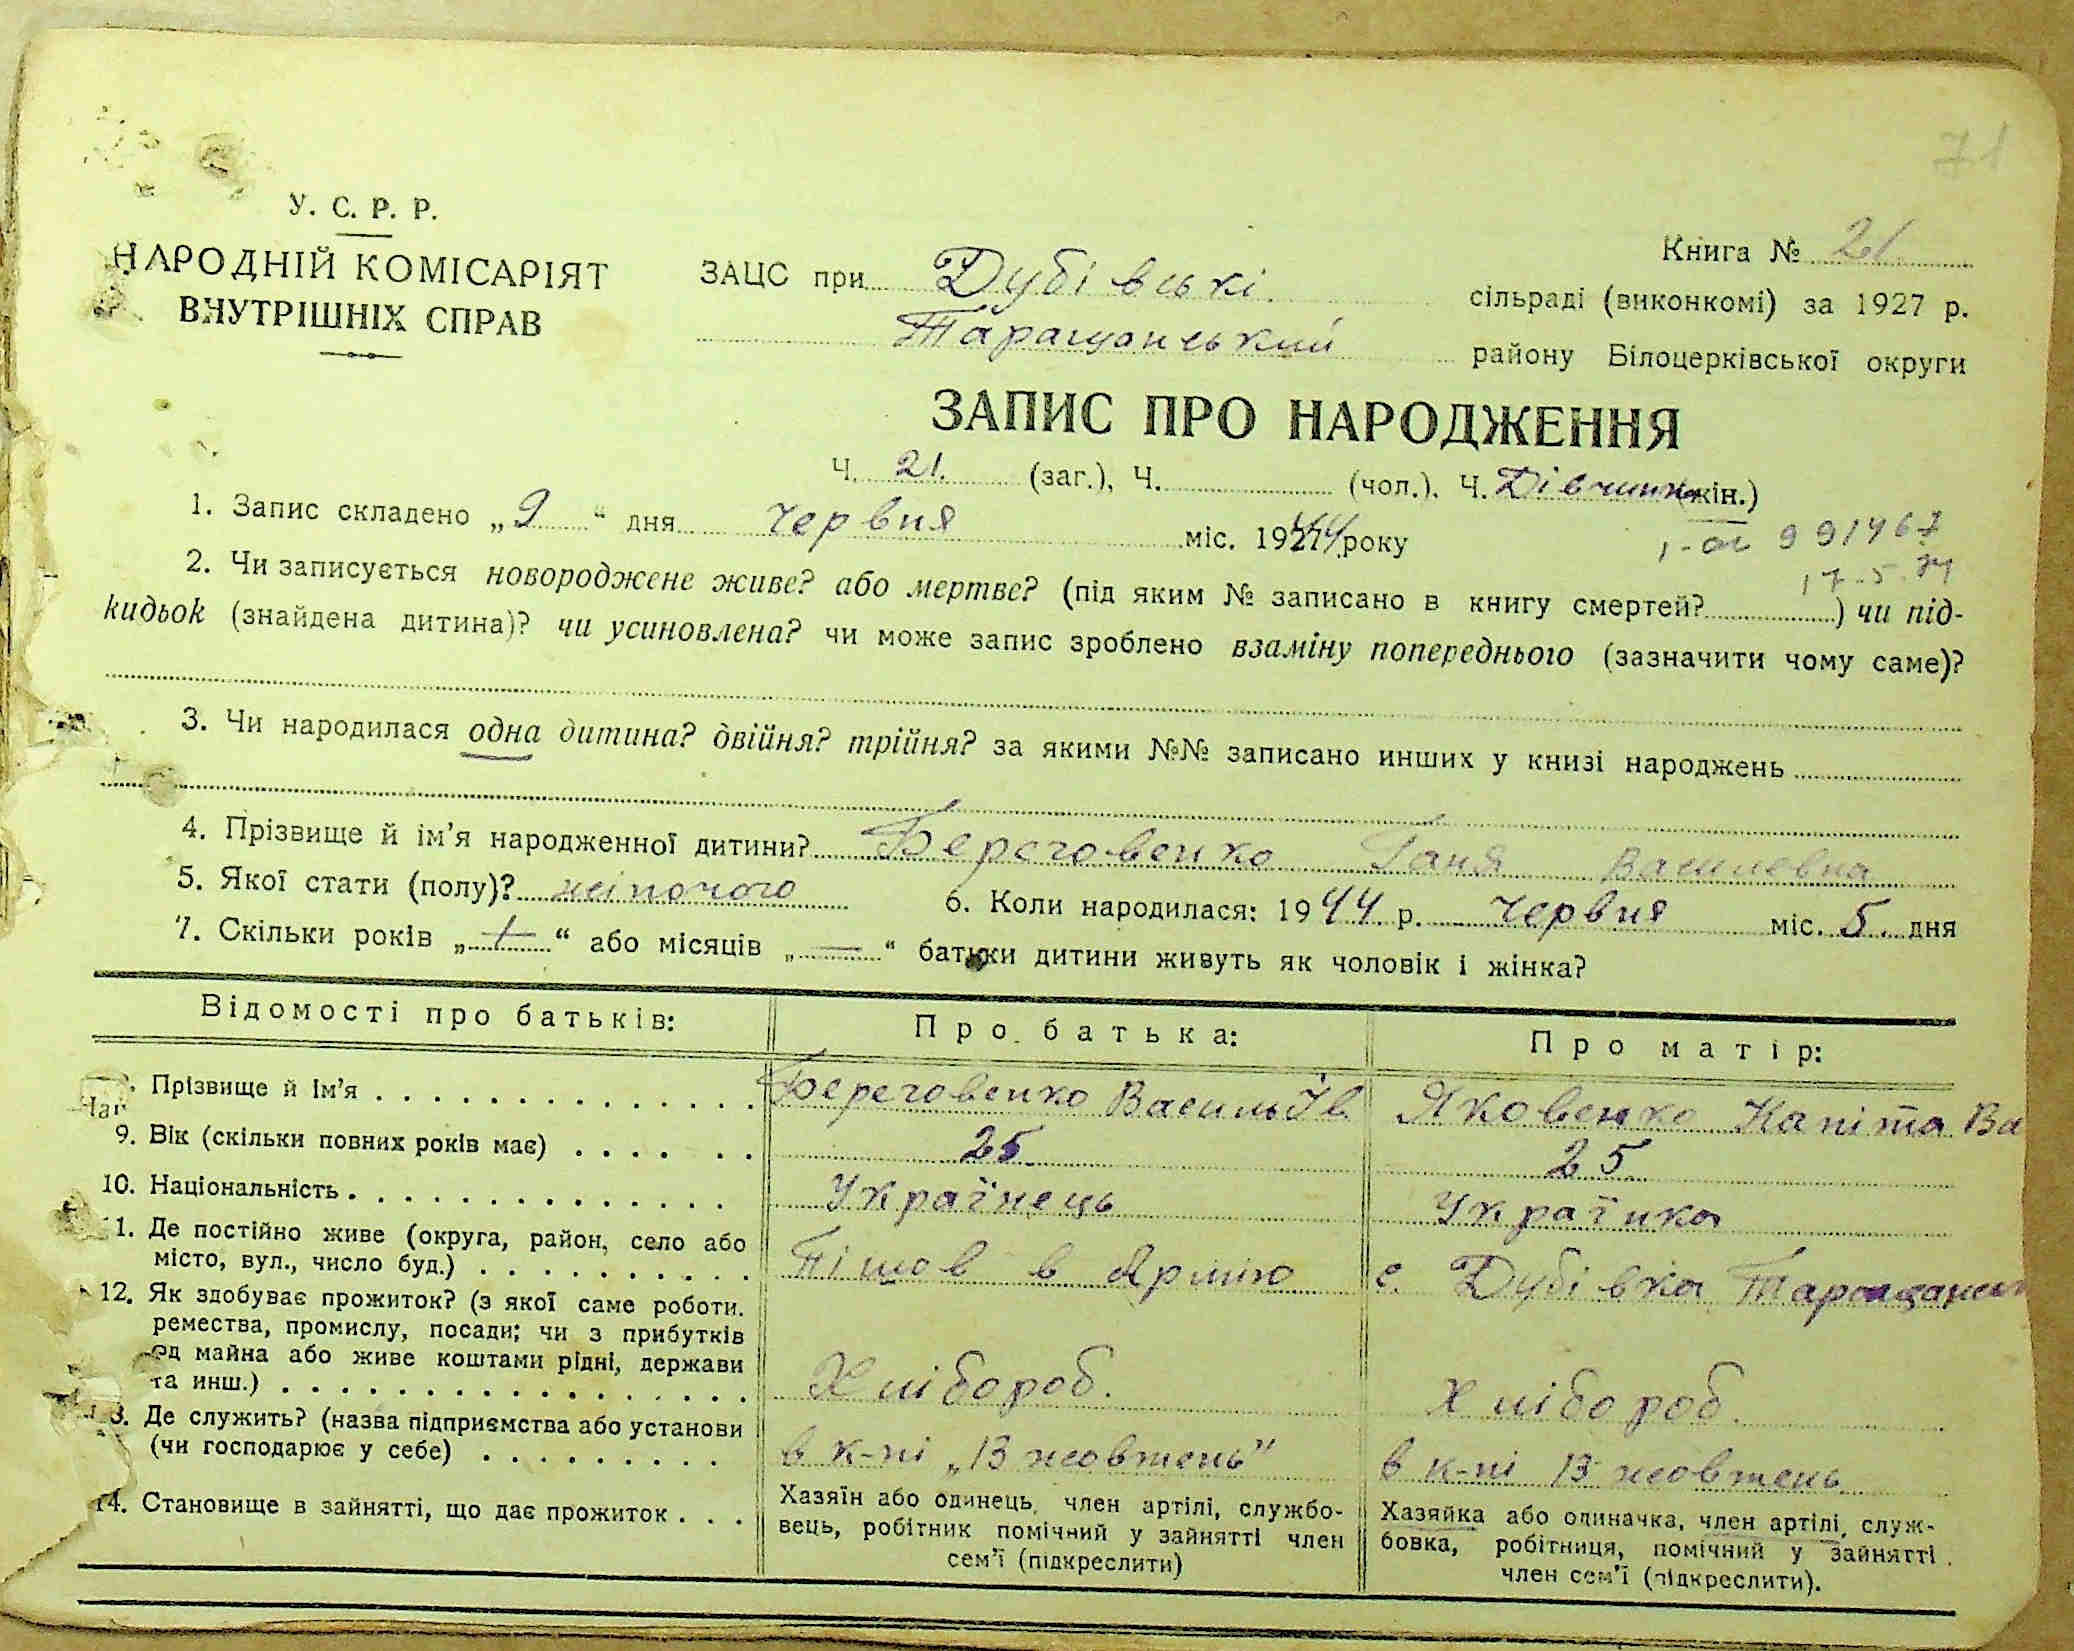 71
У. С. Р. Р.
НАРОДНІЙ КОМІСАРІЯТ
ВНУТРІШНІХ СПРАВ
Книга № 21
ЗАЦС при Дубівські сільраді (виконкомі) за 1927 р.
Таращанський району Білоцерківської округи
ЗАПИС ПРО НАРОДЖЕННЯ
Ч. 21. (заг.), Ч. (чол.). Ч. Дівчинка (жін.)
1. Запис складено „9“ дня червня міс. 1944 року
991467
17.5.
2. Чи записується новороджене живе? або мертве? (під яким № записано в книгу смертей? ) чи під-
кидьок (знайдена дитина)? чи усиновлена? чи може запис зроблено взаміну попереднього (зазначити чому саме)?
3. Чи народилася одна дитина? двійня? трійня? за якими №№ записано инших у книзі народжень
4. Прізвище й ім’я народженної дитини? Береговенко Ганя Василевна
5. Якої стати (полу)? жіночого 6. Коли народилася: 1944 р. червня міс. 5. дня
7. Скільки років „—“ або місяців „—“ батьки дитини живуть як чоловік і жінка?
Відомості про батьків: Про батька: Про матір:
Прізвище й ім’я Береговенко Василь Ів Яковенко Капіта Ва
9. Вік (скільки повних років має) 25 25
10. Національність Українець Українка
11. Де постійно живе (округа, район, село або
місто, вул., число буд.) Пішов в Армію с. Дубівка Таращанськ
12. Як здобуває прожиток? (з якої саме роботи.
ремества, промислу, посади; чи з прибутків
од майна або живе коштами рідні, держави
та инш.) Хлібороб. Хлібороб.
13. Де служить? (назва підприємства або установи
(чи господарює у себе) в к-пі „13 жовтень“ в к-пі 13 жовтень
14. Становище в зайнятті, що дає прожиток
Хазяїн або одинець, член артілі, службо-
вець, робітник помічний у зайнятті член
сем’ї (підкреслити)
Хазяйка або одиначка, член артілі, служ-
бовка, робітниця, помічний у зайнятті
член сем’ї (підкреслити).